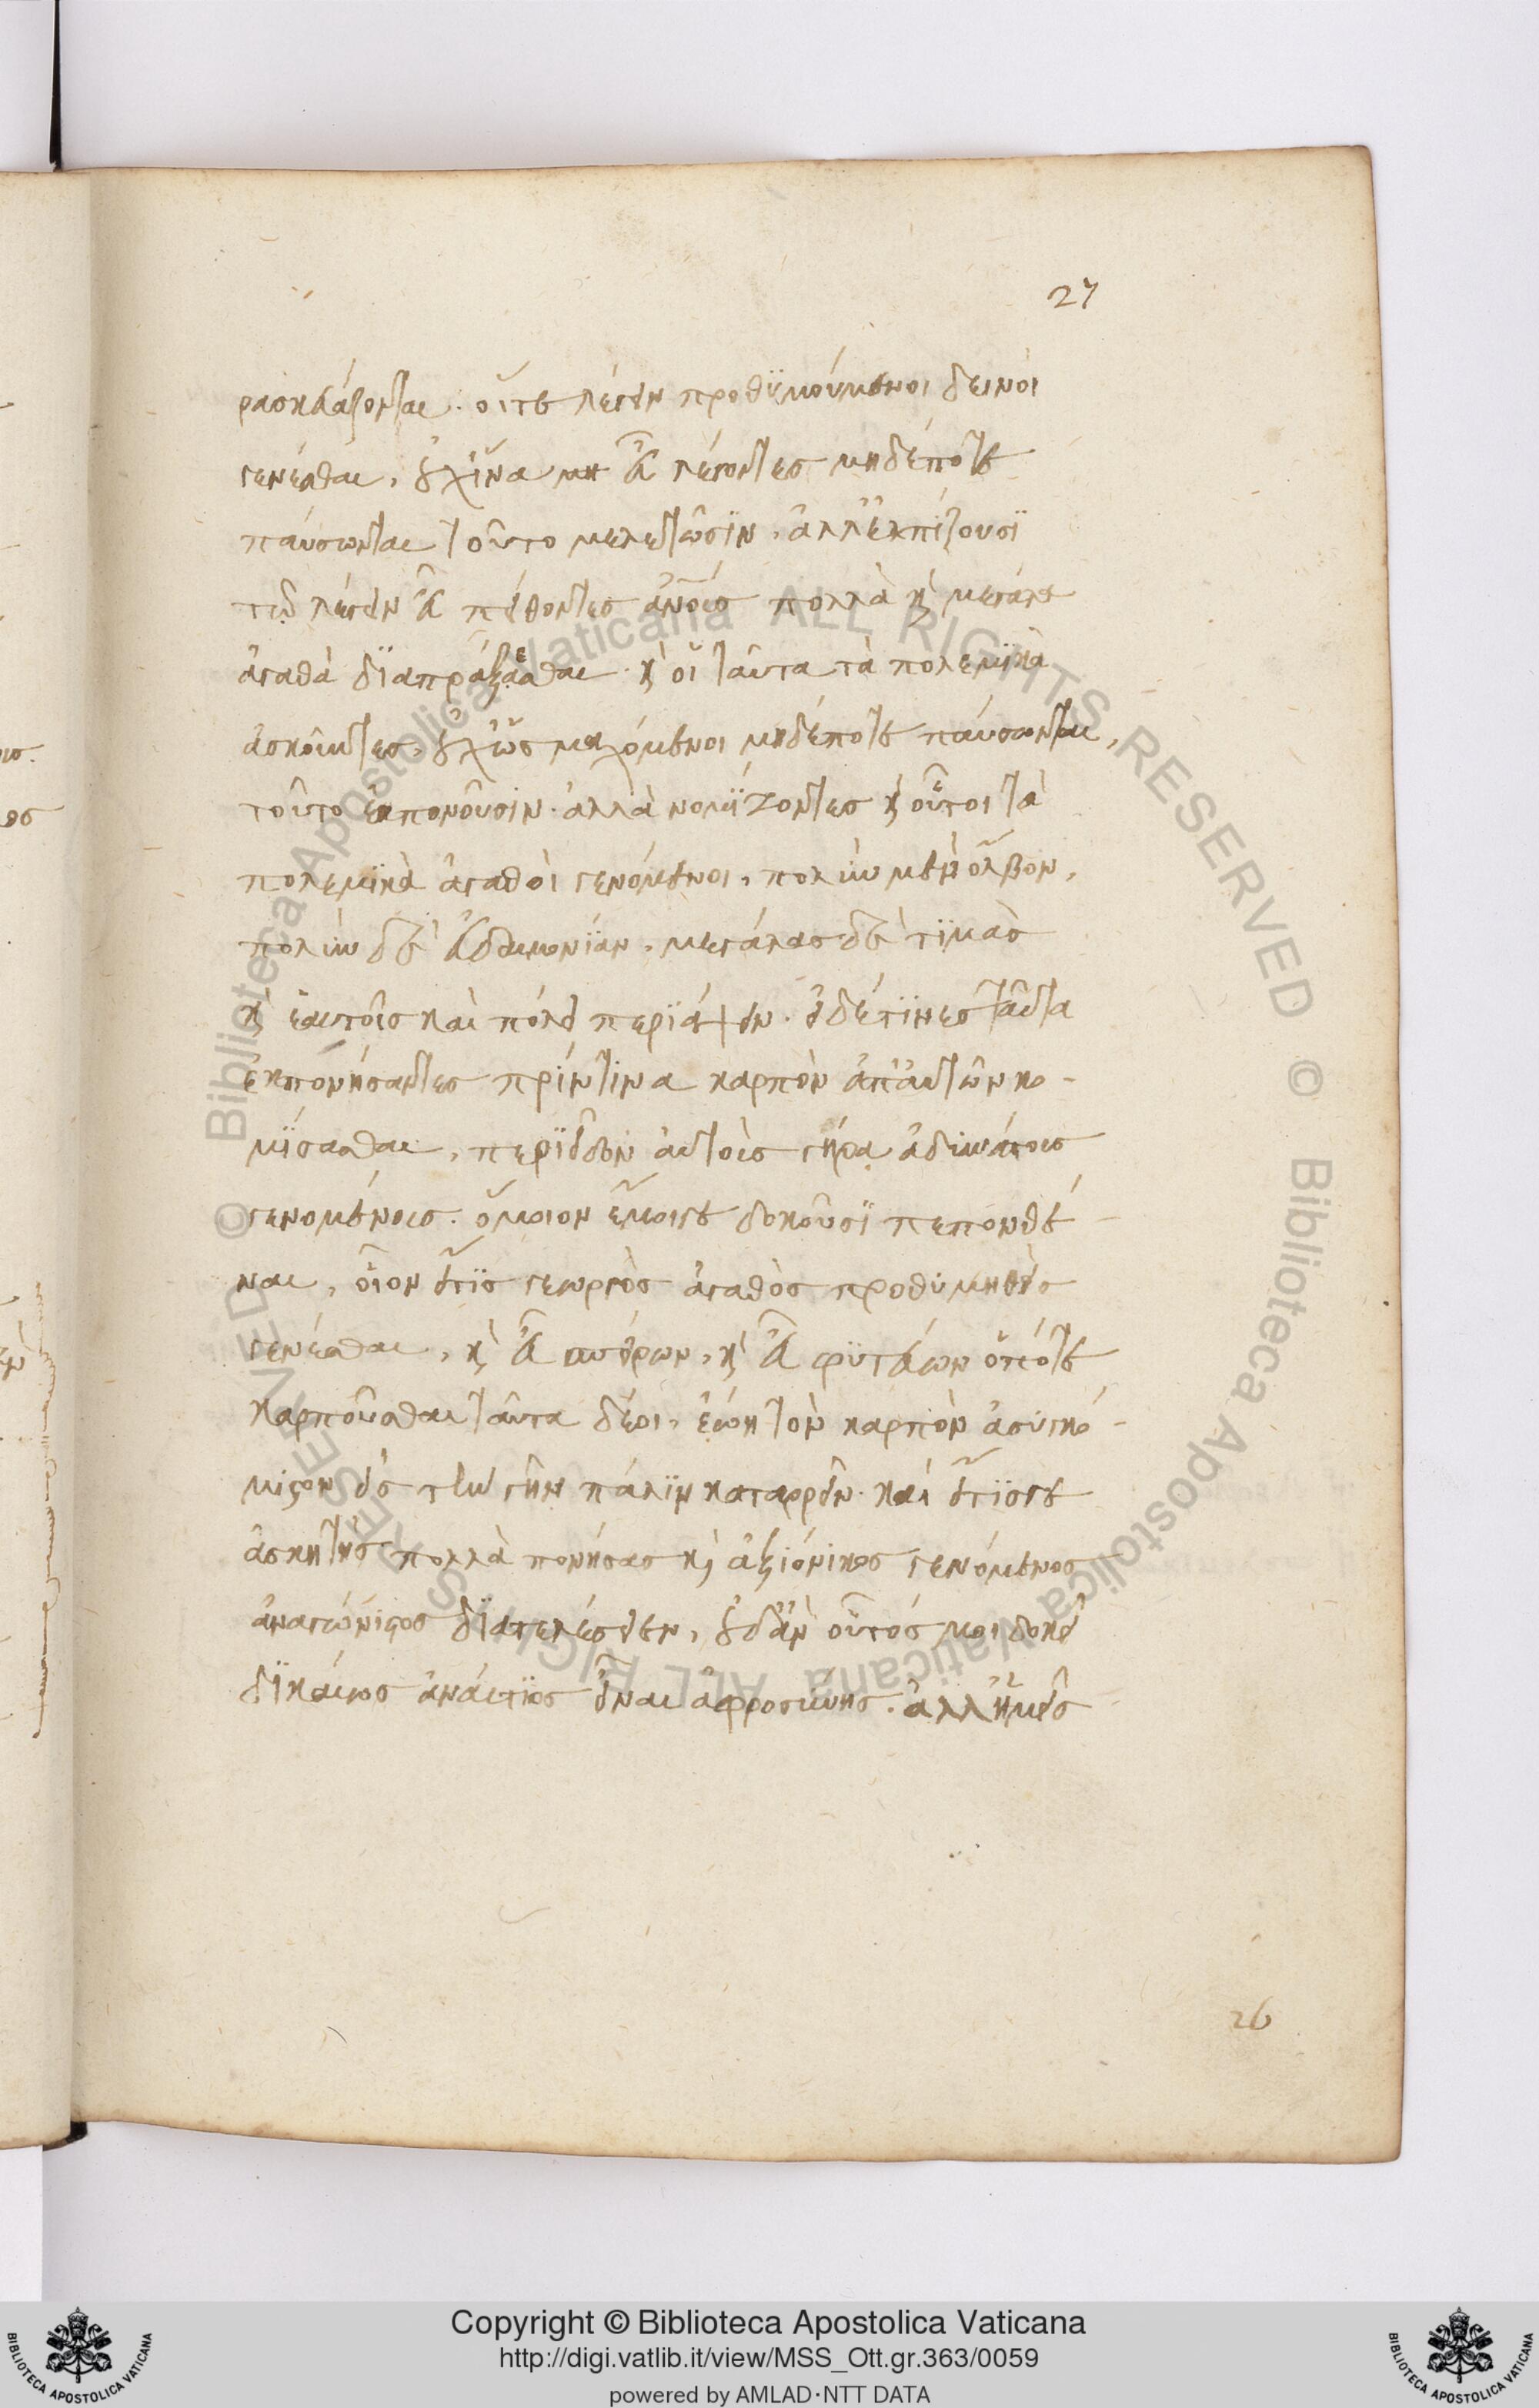 27
ρασκευάζονται. οἵτε λέγειν προθϋμούμενοι δεινοὶ
γενέσθαι, οὐχ ἵνα μὴ εὖ λέγοντες μηδέποτε
παύσωνται τοῦτο μελετῶσϊν. ἀλλ' ἐλπίζουσϊ
τῷ λέγειν εὖ πείθοντες ἀνοις πολλὰ καὶ μεγάλα
ἀγαθὰ δϊαπράξασθαι. καὶ οἱ ταῦτα τὰ πολεμϊκὰ
ἀσκοῦντες, οὐχ ὡς μαχόμενοι μηδέποτε παύσωνται,
τοῦτο ἐκπονοῦσϊν. ἀλλὰ νομΐζοντες καὶ οὗτοι τὰ
πολεμϊκὰ ἀγαθοὶ γενόμενοι, πολὺν μὲν ὄλβον,
πολὺν δὲ εὐδαιμονίαν, μεγάλας δὲ τϊμὰς
καὶ ἑαυτοῖς καὶ πόλει περιάψειν. εἰ δέ τϊνες ταῦτα
ἐκπονήσαντες πρίν τινα καρπὸν ἀπ' αὐτῶν κο-
μΐσασθαι, περιεῖδον αὐτοὺς γήρᾳ ἀδυνάτους
γενομένους. ὅμοιον ἔμοιγε δοκοῦσϊ πεπονθέ-
ναι, οἷον εἴ τϊς γεωργὸς ἀγαθὸς προθϋμηθεὶς
γενέσθαι, καὶ εὖ σπείρων, καὶ εὖ φϋτεύων ὁπότε
καρποῦσθαι ταῦτα δέοι, ἐῴη τὸν καρπὸν ἀσυγκό-
μιστον εἰς τὴν γῆν πάλϊν καταρρεῖν. καὶ εἴ τϊς γε
ἀσκητὴς πολλὰ πονήσας καὶ ἀξιόνικος γενόμενος
ἀναγώνιστος διατελέσειεν, οὐδ' ἂν οὗτός μοι δοκεῖ
δϊκαίως ἀναίτϊος εἶναι ἀφροσύνης. ἀλλ' ἡμεῖς
26
Copyright © Biblioteca Apostolica Vaticana
http://digi.vatlib.it/view/MSS_Ott.gr.363/0059
powered by AMLAD·NTT DATA